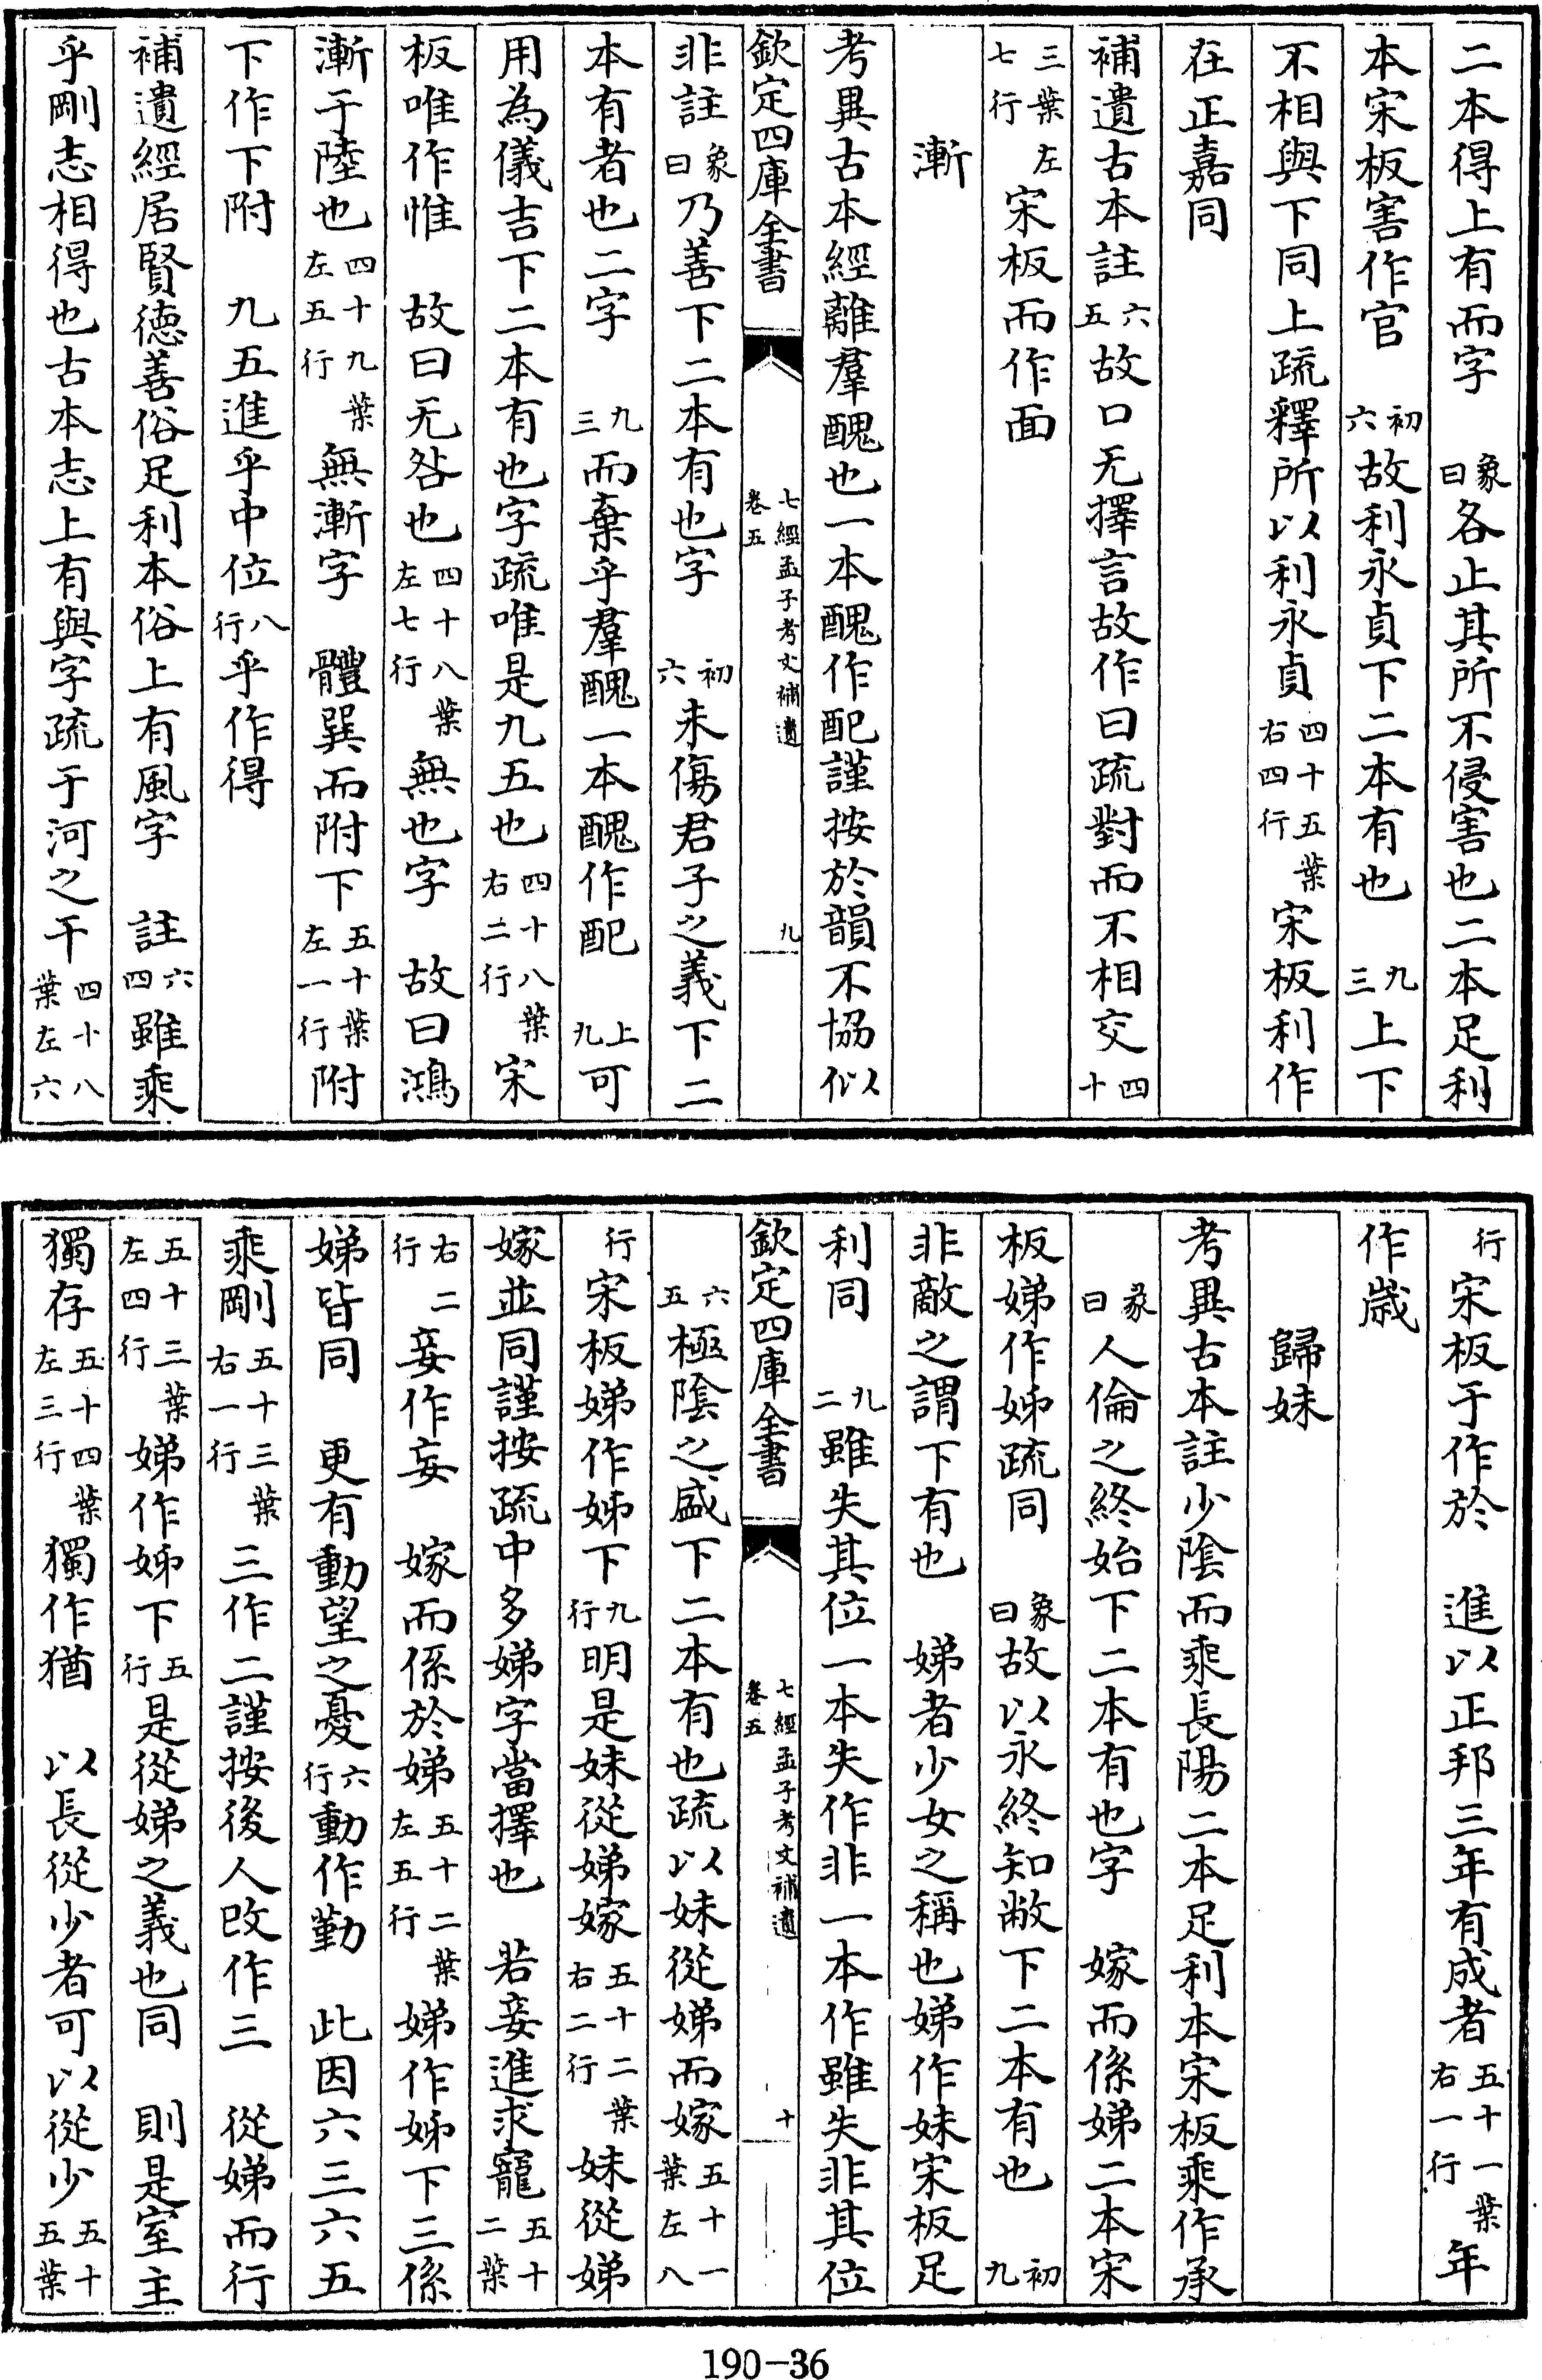 二本得上有而字　象曰各止其所不侵害也二本足利
本宋板害作官　初六故利永貞下二本有也　九三上下
不相與下同上疏釋所以利永貞四十五葉右四行宋板利作
在正嘉同
補遺古本註六五故口无擇言故作曰疏對而不相交四十
三葉左七行宋板而作面
漸
考異古本經離羣醜也一本醜作配謹按於韻不協似
欽定四庫全書　七經孟子考文補遺卷五　九
非註象曰乃善下二本有也字　初六未傷君子之義下二
本有者也二字　九三而棄乎羣醜一本醜作配　上九可
用為儀吉下二本有也字疏唯是九五也四十八葉右二行宋
板唯作惟　故曰无咎也四十八葉左七行無也字　故曰鴻
漸于陸也四十九葉左五行無漸字　體巽而附下五十葉左一行附
下作下附　九五進乎中位八行乎作得
補遺經居賢德善俗足利本俗上有風字　註六四雖乘
乎剛志相得也古本志上有與字疏于河之干四十八葉左六
行宋板于作於　進以正邦三年有成者五十一葉右一行年
作歲
歸妹
考異古本註少陰而乘長陽二本足利本宋板乘作承
彖曰人倫之終始下二本有也字　嫁而係娣二本宋
板娣作姊疏同　象曰故以永終知敝下二本有也　初九
非敵之謂下有也　娣者少女之稱也娣作妹宋板足
利同　九二雖失其位一本失作非一本作雖失非其位
欽定四庫全書　七經孟子考文補遺卷五　十
六五極陰之盛下二本有也疏以妹從娣而嫁五十一葉左八
行宋板娣作姊下九行明是妹從娣嫁五十二葉右二行妹從娣
嫁並同謹按疏中多娣字當擇也　若妾進求寵五十二葉
右二行妾作妄　嫁而係於娣五十二葉左五行娣作姊下三係
娣皆同　更有動望之憂六行動作勤　此因六三六五
乘剛五十三葉右一行三作二謹按後人改作三　從娣而行
五十三葉左四行娣作姊下五行是從娣之義也同　則是室主
獨存五十四葉左三行獨作猶　以長從少者可以從少五十五葉
190-36